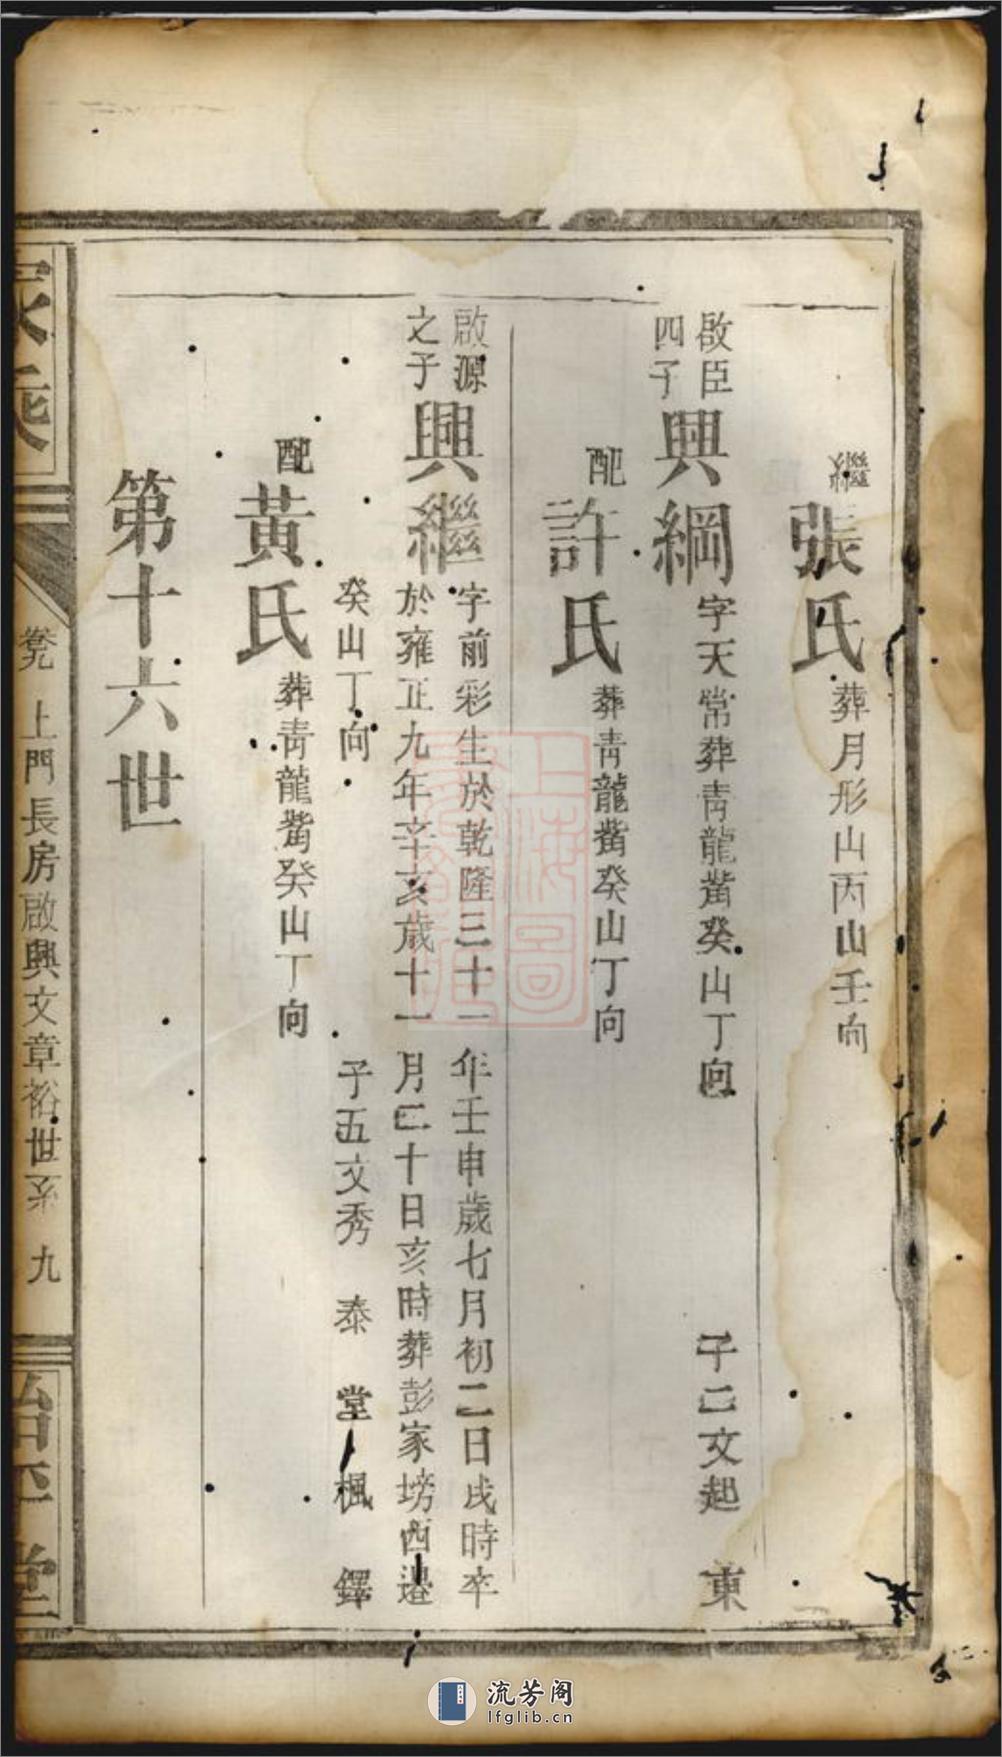 繼張氏葬月形山丙山壬向
啟臣四子興綱字天常葬青龍嘴癸山丁向 子二文起 東
配許氏葬青龍嘴癸山丁向
啟源之子興繼字前彩生於乾隆三十一年壬申歲七月初二日戌時卒
於雍正九年辛亥歲十一月二十日亥時葬彭家塝西邊
癸山丁向 子五文秀 泰 堂 楓 鐸
配黃氏葬青龍嘴癸山丁向
第十六世
家乘
卷九 上門長房啟興文章裕世系 九
堂
上海圖
流芳阁
lfglib.cn